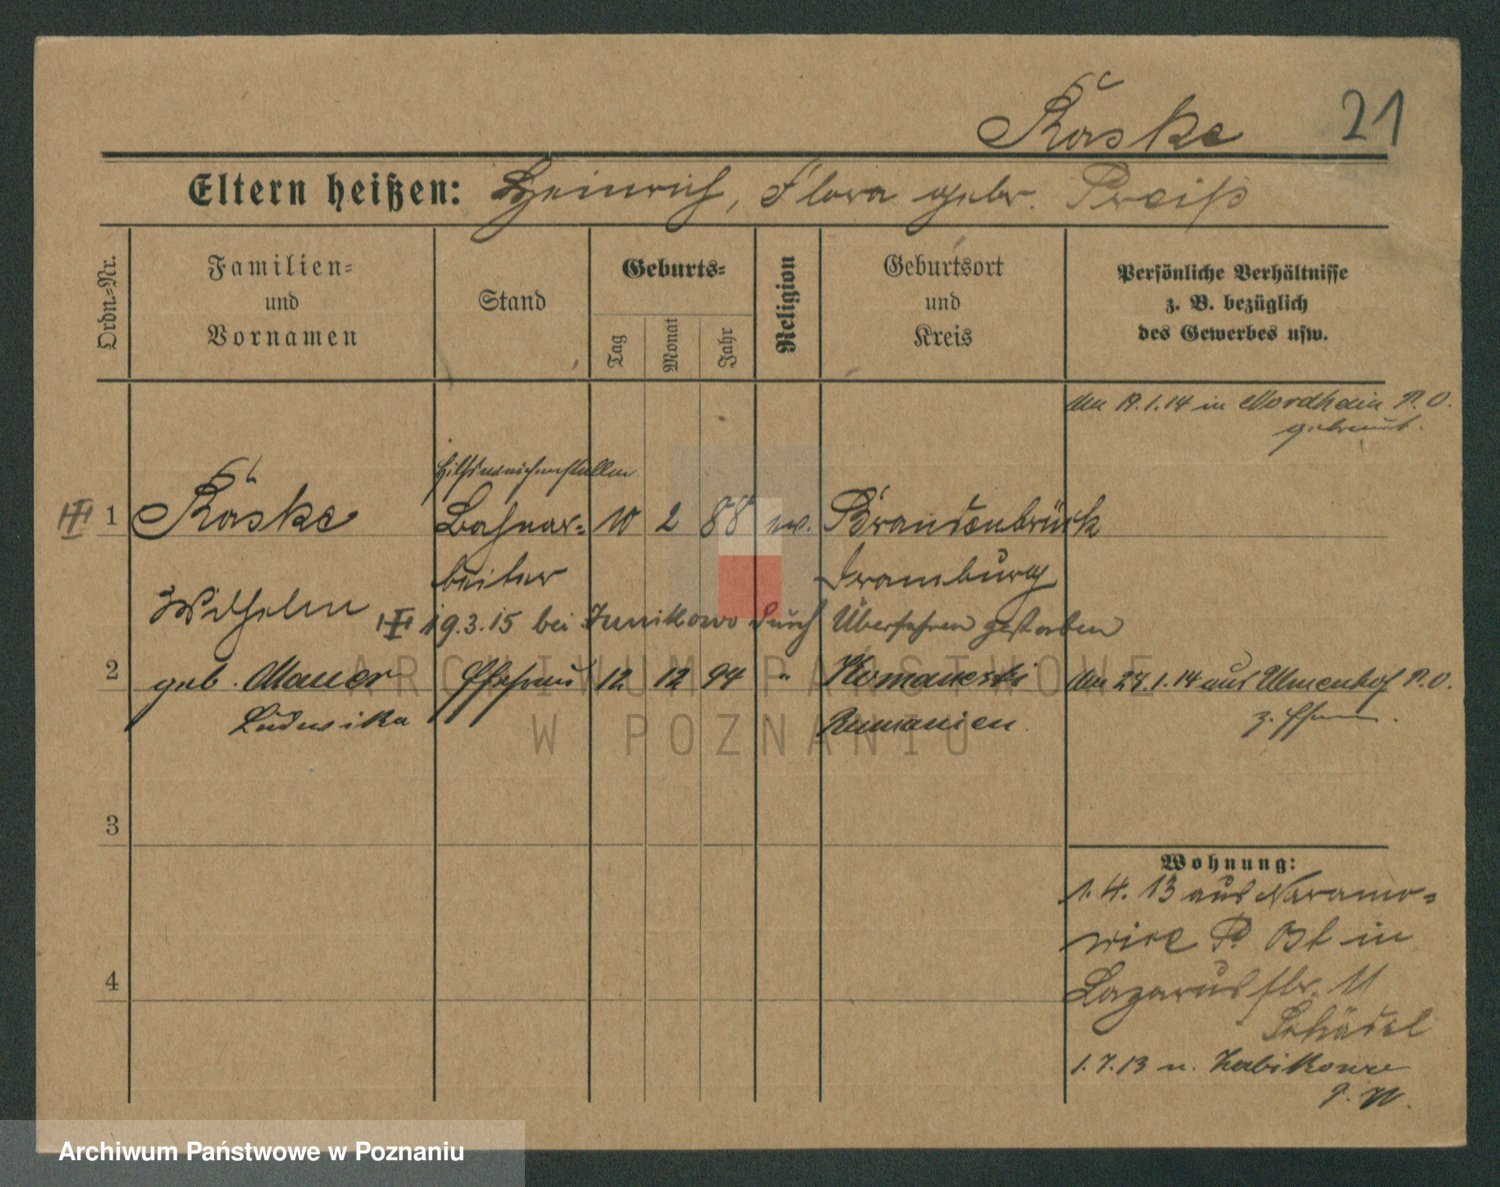 Räske 21
Eltern heißen: Heinrich, Flora gebr. Preiß
Ordn.-Nr.
Familien-
und
Vornamen
Stand
Geburts-
Tag
Monat
Jahr
Religion
Geburtsort
und
Kreis
Persönliche Verhältnisse
z. B. bezüglich
des Gewerbes usw.
den 19.1.14 in Nordheim P. O.
getraut.
Hilfsweichensteller
1 Räske Bahnar- 10 2 88 ev. Brandenbrück
beiter Dramburg
Wilhelm
19.3.15 bei Junikowo durch Überfahren gestorben
2 geb. Mauer Ehefrau 12 12 94 " Komanesti den 27.1.14 aus Ulmenhof P. O.
Ludwika Rumänien. z. Ehem.
3
4
Wohnung:
1.4.13 aus Naramo-
wice P. Ost in
Lazarusstr. 11
Schädel
1.7.13 n. Zabikowo
P. W.
ARCHIWUM PAŃSTWOWE
W POZNANIU
Archiwum Państwowe w Poznaniu